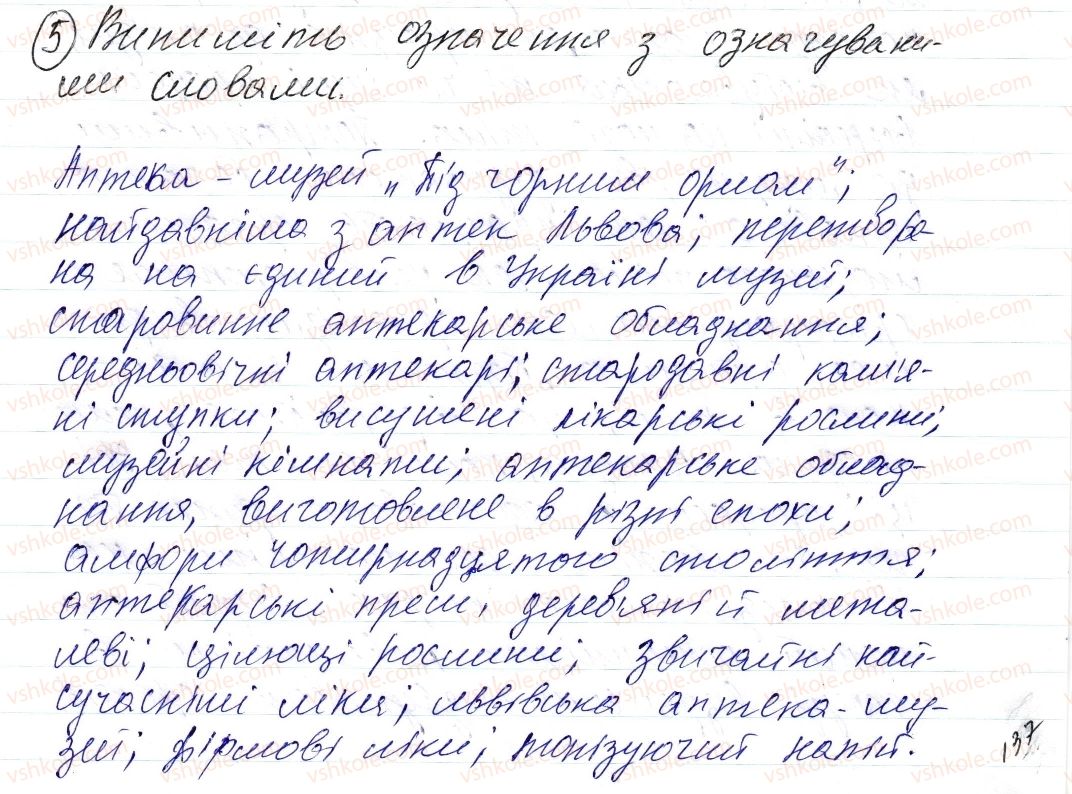 ⑤ Випишіть означення з означувани-
ми словами.
Аптека - музей „Під чорним орлом";
найдавніша з аптек Львова; перетворе-
на на єдиний в Україні музей;
старовинне аптекарське обладнання;
середньовічні аптекарі; стародавні кам'я-
ні ступки; висушені лікарські рослини;
музейні кімнати; аптекарське облад-
нання, виготовлене в різні епохи;
амфори чотирнадцятого століття;
аптекарські преси, дерев'яні й мета-
леві; цілющі рослини; звичайні най-
сучасніші ліки; львівська аптека-му-
зей; фірмові ліки; тонізуючий напій.
137